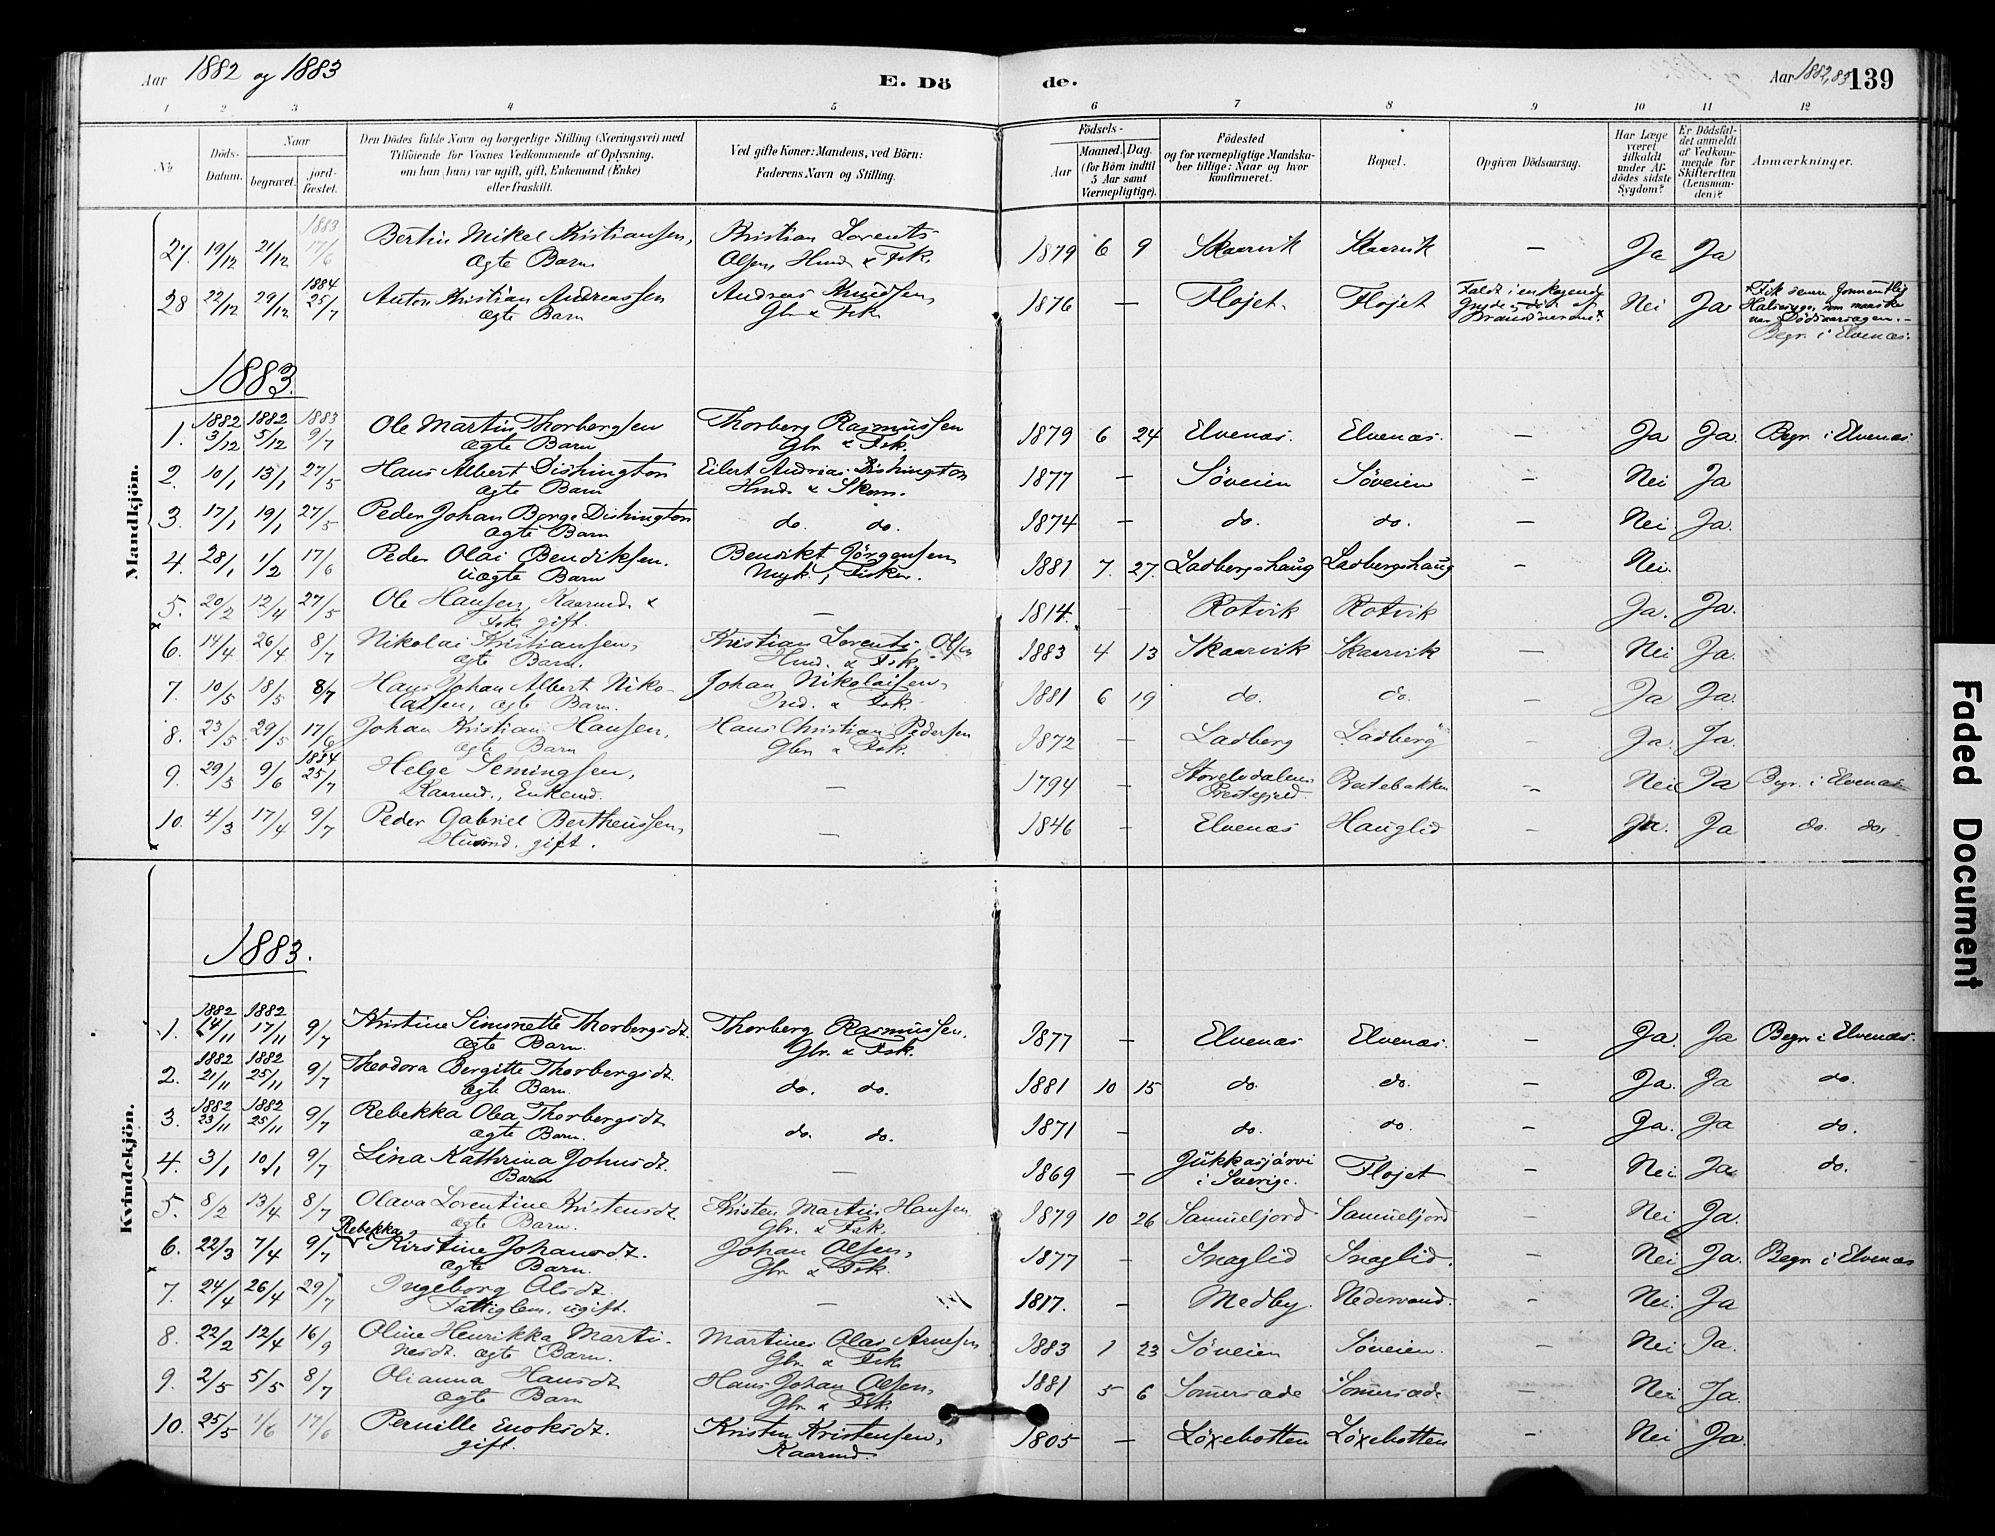 Aar 1882 og 1883
E. Dö de.
Aar 1882,83 139
1 2 3 4 5 6 7 8 9 10 11 12
No.
Döds-Datum.
Naar
begravet.
jord-fæstet.
Den Dödes fulde Navn og borgerlige Stilling (Næringsvei) med
Tilföiende for Voxnes Vedkommende af Oplysning,
om han (hun) var ugift, gift, Enkemand (Enke)
eller fraskilt.
Ved gifte Koner: Mandens, ved Börn:
Faderens Navn og Stilling.
Födsels-
Aar
Maaned.
Dag.
(for Børn indtil
5 Aar samt
Værnepligtige).
Födested
og for værnepligtige Mandska-
ber tillige: Naar og hvor
konfirmeret.
Bopæl.
Opgiven Dödsaarsag.
Har Læge
været
tilkaldt
under Af-
dödes sidste
Sygdom?
Er Dödsfal-
det anmeldt
af Vedkom-
mende for
Skifteretten
(Lensman-
den)?
Anmærkninger.
Mandkjön.
27. 19/12 21/12 1883 17/6 Bertin Mikal Kristiansen, Kristian Lorents 1879 6 9 Skaarvik Skaarvik — Ja Ja
ægte Barn Olsen, Hmd. & Fsk.
28 22/12 29/12 1884 25/7 Anton Kristian Andreassen Andreas Knudsen, 1876 — Fløjet. Fløjet Faldt i en kogende Nei Ja
ægte Barn Gbr. & Fsk. Begr. i Elvenæs.
1883.
1. 1882 3/12 1882 5/12 1883 9/7 Ole Martin Thorbergsen Thorberg Rasmussen 1879 6 24 Elvenæs. Elvenæs. — Ja Ja. Begr. i Elvenæs
ægte Barn Gbr. & Fsk.
2. 10/1 13/1 27/5 Hans Albert Dishington Eilert Andrias Dishington 1877 — Söveien Söveien — Nei Ja
ægte Barn Hmd. & Skom.
3. 17/1 19/1 27/5 Peder Johan Borge Dishington do. do. 1874 — do. do. — Nei Ja.
ægte Barn
4. 28/1 1/2 17/6 Peder Olai Bendiksen. Bendikt Jörgensen 1881 7. 27. Ladbergshaug Ladbergshaug — Nei.
uægte Barn Ungk., Fisker.
5. 20/2 12/4 27/5 Ole Hansen, Kaarmd. & — 1814. — Rotvik Rotvik — Ja. Ja.
Fsk. gift.
6. 14/4 26/4 8/7 Nikolai Kristiansen, Kristian Lorents Olsen 1883 4 13 Skaarvik Skaarvik — Nei Ja.
ægte Barn. Hmd. & Fsk.
7. 10/5 18/5 8/7 Hans Johan Albert Niko- Johan Nikolaisen, 1881 6 19 do. do. — Ja Ja.
laisen, ægte Barn. Ind. & Fsk.
8. 23/5 29/5 17/6 Johan Kristian Hansen, Hans Christian Pedersen 1872 — Ladberg Ladberg — Ja. Ja.
ægte Barn Gbr. & Fsk.
9. 29/5 9/6 1884 25/7 Helge Semingsen, — 1794 — Storelvdalens Bratebakken — Nei Ja Begr. i Elvenæs
Kaarmd., Enkemd. Prestegjeld.
10. 4/3 17/4 9/7 Peder Gabriel Bertheussen, — 1846 — Elvenæs Hauglid — Ja. Ja do. do.
Husmd. gift.
Kvindekjön.
1883.
1. 1882 14/11 1882 17/11 9/7 Kristine Simonette Thorbergsdt. Thorberg Rasmussen. 1877 — Elvenæs Elvenæs. — Ja Ja Begr. i Elvenæs.
ægte Barn. Gbr. & Fsk.
2. 1882 21/11 1882 25/11 9/7 Theodora Bergitte Thorbergsdt. do. do. 1881 10 15 do. do. — Ja. Ja do.
ægte Barn.
3. 1882 23/11 1882 25/11 9/7 Rebekka Olea Thorbergsdt. do. do. 1871 — do. do. — Ja. Ja do.
ægte Barn.
4. 3/1 10/1 9/7 Lina Kathrina Johnsdt. — 1869 — Jukkasjärvi Fløjet — Nei Ja do.
Barn i Sverige.
5. 8/2 13/4 8/7 Olava Lorentine Kristensdt. Kristen Martin Hansen 1879 10 26 Samueljord Samueljord — Nei Ja.
ægte Barn. Gbr. & Fsk.
6. 22/3 7/4 9/7 Rebekka Kirstine Johansdt. Johan Olsen, 1877 — Snaglid Snaglid. — Nei Ja. Begr. i Elvenæs
ægte Barn. Gbr. & Fsk.
7. 24/4 26/4 29/7 Ingeborg Olsdt. — 1817. — Medby. Nedervand. — Nei. Ja
Fattiglem, ugift.
8. 22/2 12/4 16/9 Oline Henrikka Marti- Martines Olai Arnesen 1883 1 23 Söveien Söveien. — Nei Ja.
nesdt. ægte Barn. Gbr. & Fsk.
9. 2/5 5/5 8/7 Olianna Hansdt. Hans Johan Olsen, 1881 5 6 Somersæde Somersæde — Nei Ja.
ægte Barn Gbr. & Fsk.
10. 25/5 1/6 17/6 Pernille Enoksdt. Kristen Kristensen, 1805 — Löxebotten Löxebotten — Nei Ja.
gift. Kaarmd.
Faded Document